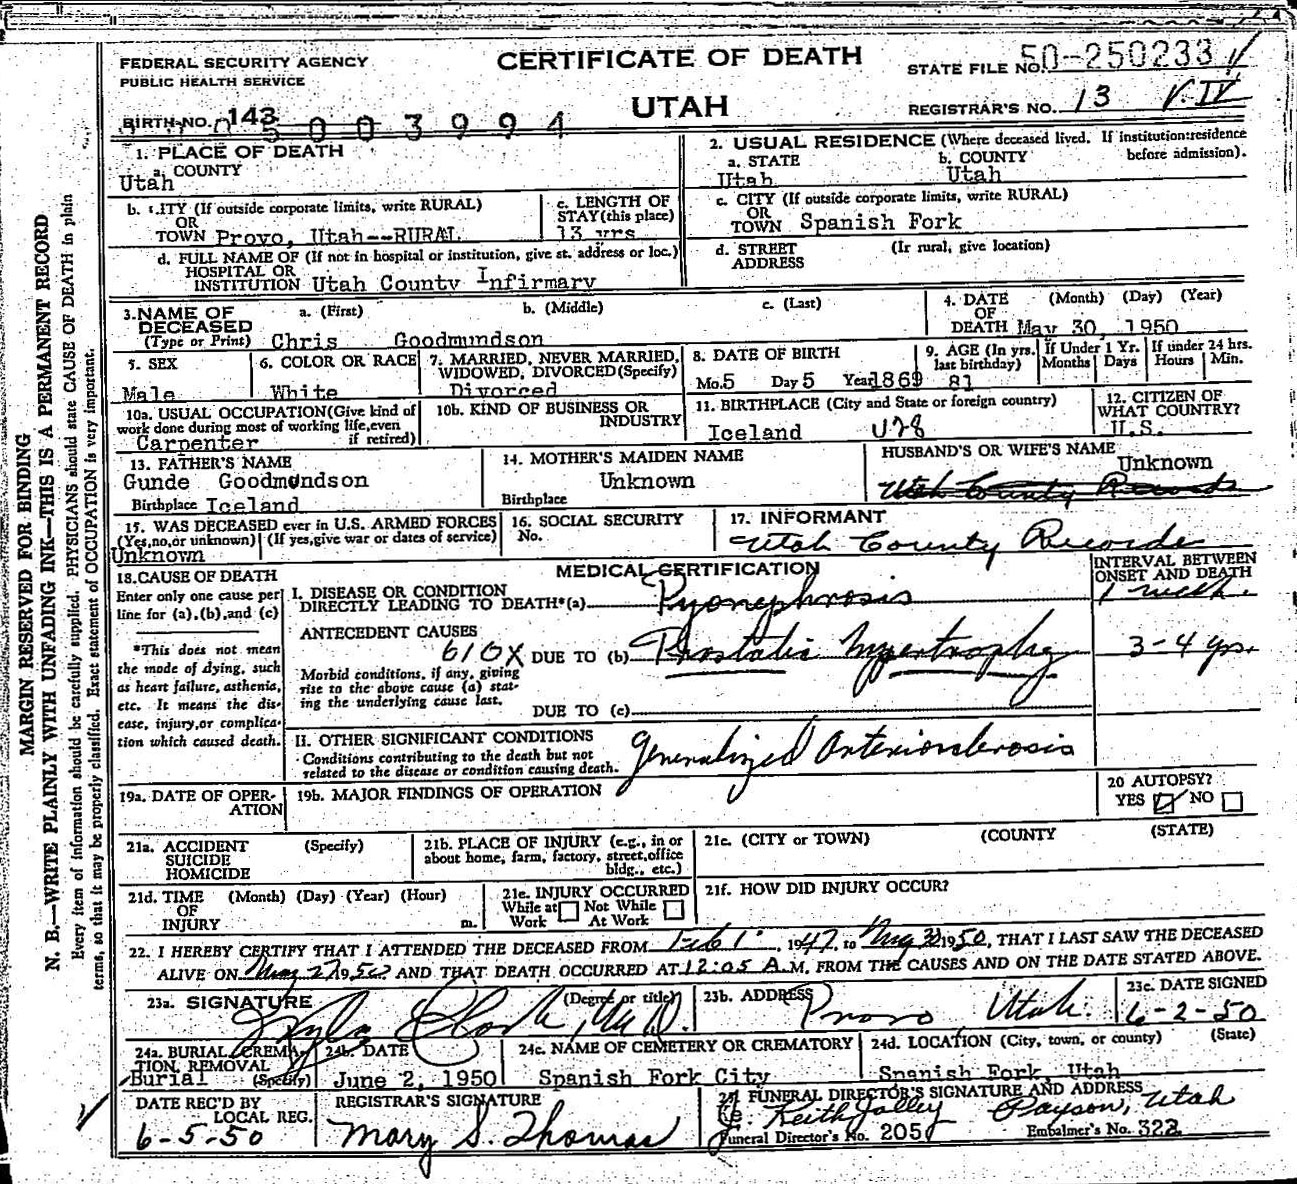 CERTIFICATE OF DEATH
UTAH
FEDERAL SECURITY AGENCY
PUBLIC HEALTH SERVICE
STATE FILE NO. 50-250233
REGISTRAR'S NO. 13 V.IV
BIRTH NO. 143
5003994
1. PLACE OF DEATH
a. COUNTY
Utah
b. CITY (If outside corporate limits, write RURAL)
OR
TOWN Provo, Utah--RURAL
c. LENGTH OF
STAY (this place)
13 yrs
d. FULL NAME OF (If not in hospital or institution, give st. address or loc.)
HOSPITAL OR
INSTITUTION Utah County Infirmary
2. USUAL RESIDENCE (Where deceased lived. If institution: residence
before admission).
a. STATE b. COUNTY
Utah Utah
c. CITY (If outside corporate limits, write RURAL)
OR
TOWN Spanish Fork
d. STREET (If rural, give location)
ADDRESS
3. NAME OF a. (First) b. (Middle) c. (Last)
DECEASED
(Type or Print) Chris Goodmundson
4. DATE (Month) (Day) (Year)
OF
DEATH May 30, 1950
5. SEX
Male
6. COLOR OR RACE
White
7. MARRIED, NEVER MARRIED,
WIDOWED, DIVORCED (Specify)
Divorced
8. DATE OF BIRTH
Mo. 5 Day 5 Year 1869
9. AGE (In yrs.
last birthday)
81
If Under 1 Yr.
Months Days
If under 24 hrs.
Hours Min.
10a. USUAL OCCUPATION (Give kind of
work done during most of working life, even
if retired)
Carpenter
10b. KIND OF BUSINESS OR
INDUSTRY
11. BIRTHPLACE (City and State or foreign country)
Iceland
12. CITIZEN OF
WHAT COUNTRY?
U.S.
13. FATHER'S NAME
Gunde Goodmundson
Birthplace Iceland
14. MOTHER'S MAIDEN NAME
Unknown
Birthplace
HUSBAND'S OR WIFE'S NAME
Unknown
Utah County Records
15. WAS DECEASED ever in U.S. ARMED FORCES
(Yes, no, or unknown) (If yes, give war or dates of service)
Unknown
16. SOCIAL SECURITY
No.
17. INFORMANT
Utah County Recorder
18. CAUSE OF DEATH
Enter only one cause per
line for (a), (b), and (c)
*This does not mean
the mode of dying, such
as heart failure, asthenia,
etc. It means the dis-
ease, injury, or complica-
tion which caused death.
MEDICAL CERTIFICATION
INTERVAL BETWEEN
ONSET AND DEATH
I. DISEASE OR CONDITION
DIRECTLY LEADING TO DEATH*(a) Pyonephrosis 1 week.
ANTECEDENT CAUSES
610X DUE TO (b) Prostatic hypertrophy 3-4 yrs.
Morbid conditions, if any, giving
rise to the above cause (a) stat-
ing the underlying cause last.
DUE TO (c)
II. OTHER SIGNIFICANT CONDITIONS
Conditions contributing to the death but not
related to the disease or condition causing death.
Generalized Arteriosclerosis
19a. DATE OF OPER-
ATION
19b. MAJOR FINDINGS OF OPERATION
20 AUTOPSY?
YES NO
21a. ACCIDENT (Specify)
SUICIDE
HOMICIDE
21b. PLACE OF INJURY (e.g., in or
about home, farm, factory, street, office
bldg., etc.)
21c. (CITY or TOWN) (COUNTY (STATE)
21d. TIME (Month) (Day) (Year) (Hour)
OF
INJURY m.
21e. INJURY OCCURRED
While at Not While
Work At Work
21f. HOW DID INJURY OCCUR?
22. I HEREBY CERTIFY THAT I ATTENDED THE DECEASED FROM Feb 1, 1947, to May 30 1950, THAT I LAST SAW THE DECEASED
ALIVE ON May 27 1950 AND THAT DEATH OCCURRED AT 12:05 A.M. FROM THE CAUSES AND ON THE DATE STATED ABOVE.
23a. SIGNATURE (Degree or title)
Clark, M.D.
23b. ADDRESS
Provo Utah.
23c. DATE SIGNED
6-2-50
24a. BURIAL, CREMA-
TION, REMOVAL
(Specify)
Burial
24b. DATE
June 2, 1950
24c. NAME OF CEMETERY OR CREMATORY
Spanish Fork City
24d. LOCATION (City, town, or county) (State)
Spanish Fork, Utah
DATE REC'D BY
LOCAL REG.
6-5-50
REGISTRAR'S SIGNATURE
Mary S. Thomas
25. FUNERAL DIRECTOR'S SIGNATURE AND ADDRESS
Keith Jolley Payson, Utah
Funeral Director's No. 205 Embalmer's No. 322
MARGIN RESERVED FOR BINDING
N. B.—WRITE PLAINLY WITH UNFADING INK—THIS IS A PERMANENT RECORD
Every item of information should be carefully supplied. PHYSICIANS should state CAUSE OF DEATH in plain
terms, so that it may be properly classified. Exact statement of OCCUPATION is very important.